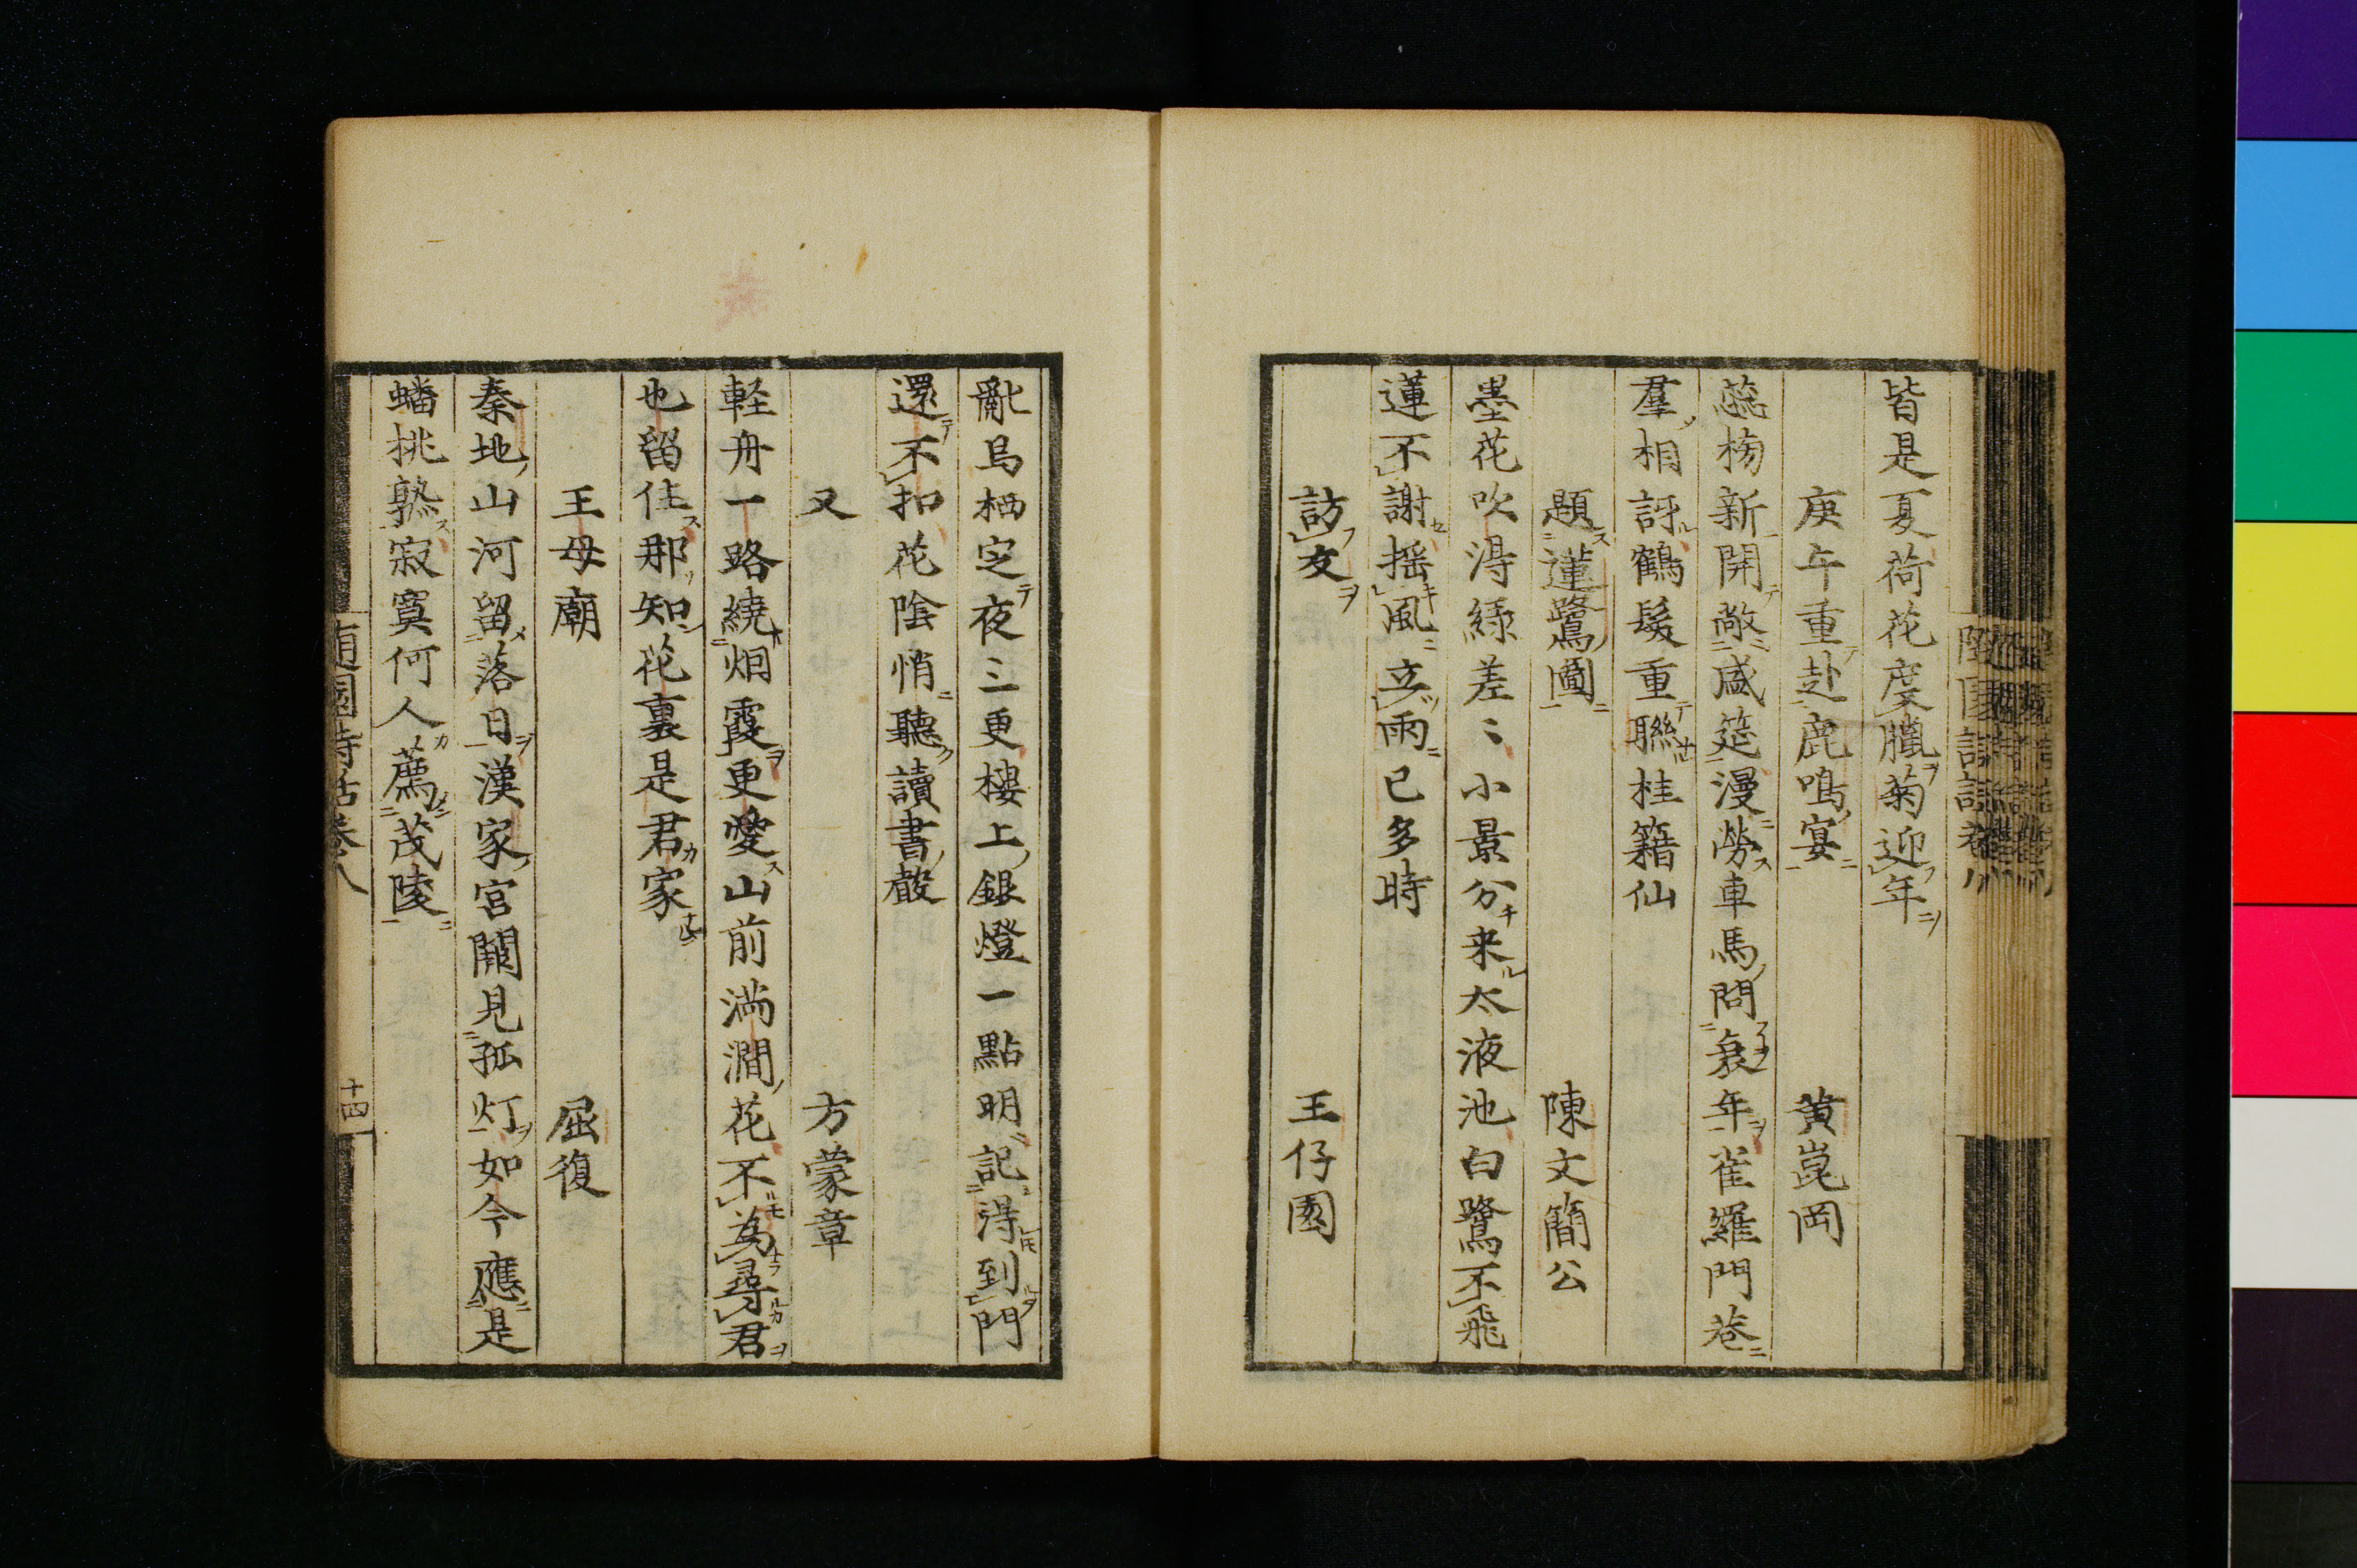 皆是夏荷花度臘菊迎年
庚午重赴鹿鳴宴 黄崑岡
蕊榜新開敞盛筵漫勞車馬問衰年雀羅門巷
羣相訝鶴髮重聯桂籍仙
題蓮鷺圖 陳文簡公
墨花吹得綠差〻小景分来太液池白鷺不飛
蓮不謝搖風立雨已多時
訪友 王仔園
亂烏栖定夜三更樓上銀燈一點明記得到門
還不扣花陰悄聽讀書聲
又 方蒙章
軽舟一路繞烟霞更愛山前満澗花不為尋君
也留住那知花裏是君家
王母廟 屈復
秦地山河留落日漢家宮闕見孤灯如今應是
蟠桃熟寂寞何人薦茂陵
随園詩話巻八
十四